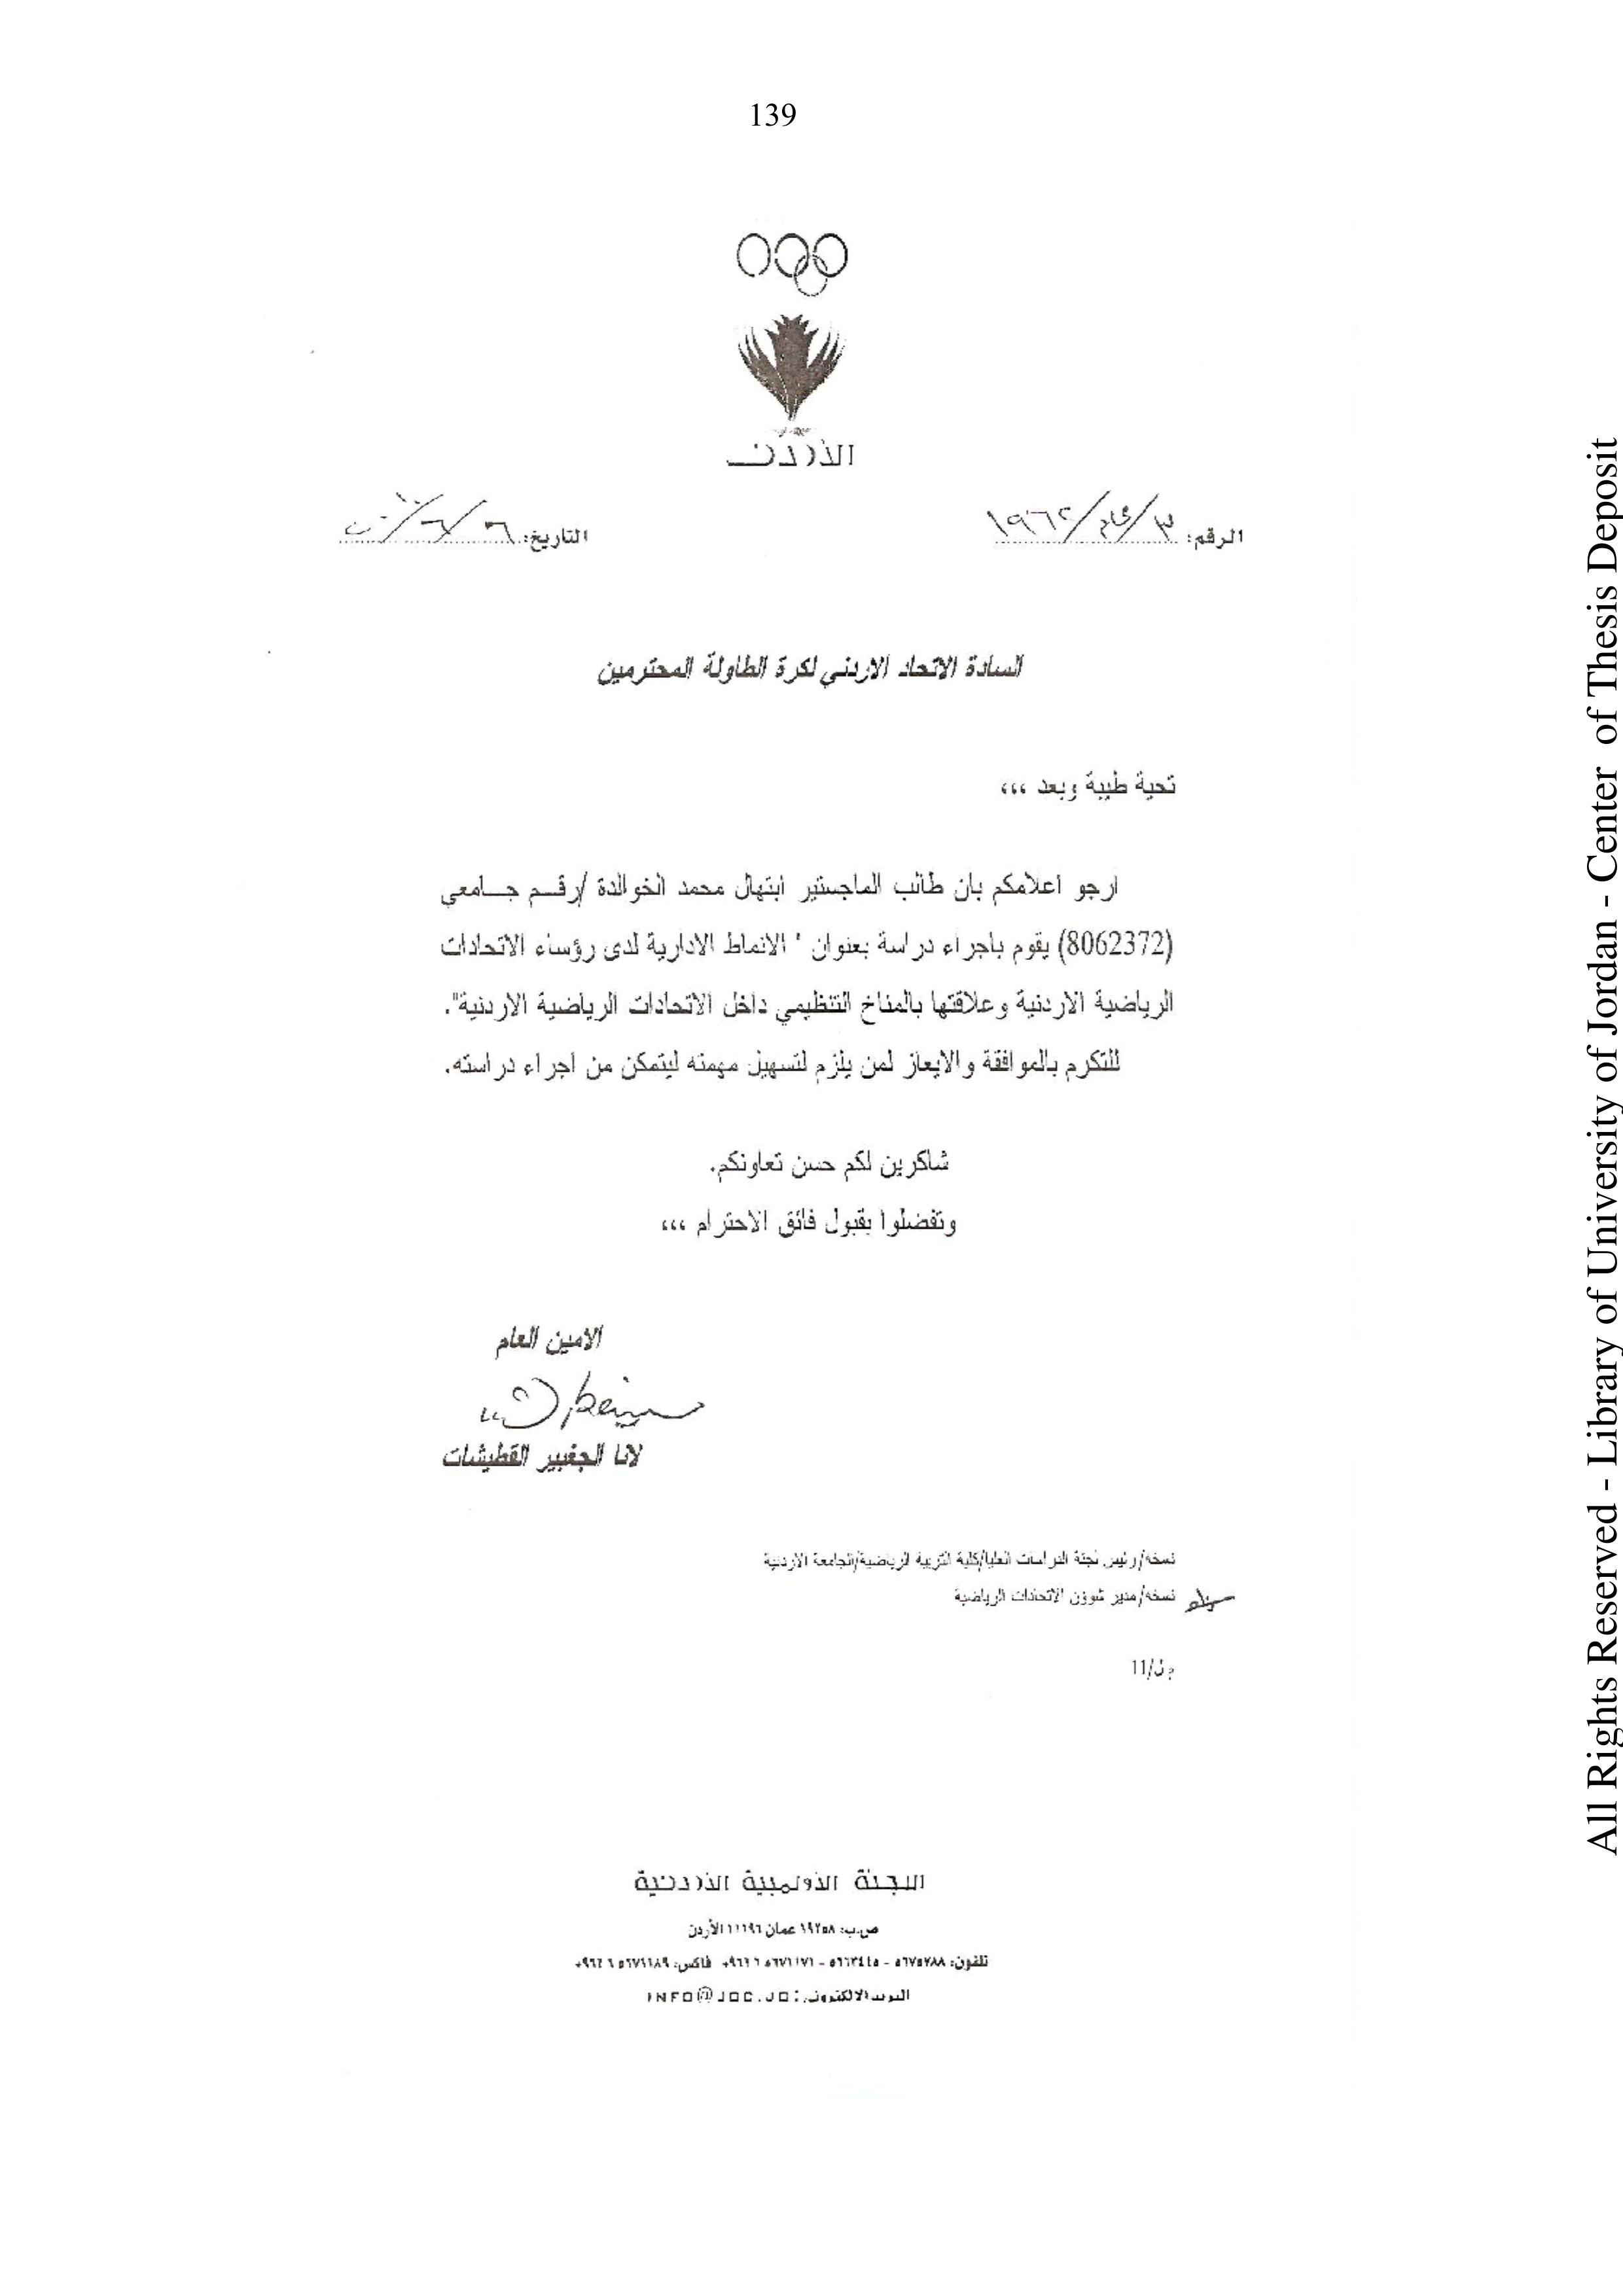 139
الأردن
الرقم: ٣/عام/١٩٦٢
التاريخ:
السادة الاتحاد الاردني لكرة الطاولة المحترمين
تحية طيبة وبعد ،،،
ارجو اعلامكم بان طالب الماجستير ابتهال محمد الخوالدة /رقم جامعي
(8062372) يقوم باجراء دراسة بعنوان " الانماط الادارية لدى رؤساء الاتحادات
الرياضية الاردنية وعلاقتها بالمناخ التنظيمي داخل الاتحادات الرياضية الاردنية".
للتكرم بالموافقة والايعاز لمن يلزم لتسهيل مهمته ليتمكن من اجراء دراسته.
شاكرين لكم حسن تعاونكم.
وتفضلوا بقبول فائق الاحترام ،،،
الامين العام
لانا الجغبير القطيشات
نسخه/رئيس لجنة الدراسات العليا/كلية التربية الرياضية/الجامعة الاردنية
نسخه/مدير شؤون الاتحادات الرياضية
11/
اللجنة الأولمبية الأردنية
ص.ب: ١٩٢٥٨ عمان ١١١٩٦ الأردن
تلفون: ٥٦٧٥٧٨٨ - ٥٦٦٣٤٤٥ - ٥٦٧١١٧١ ٦ ٩٦٢+ فاكس:
البريد الالكتروني: INFO@JOC.JO
All Rights Reserved - Library of University of Jordan - Center of Thesis Deposit